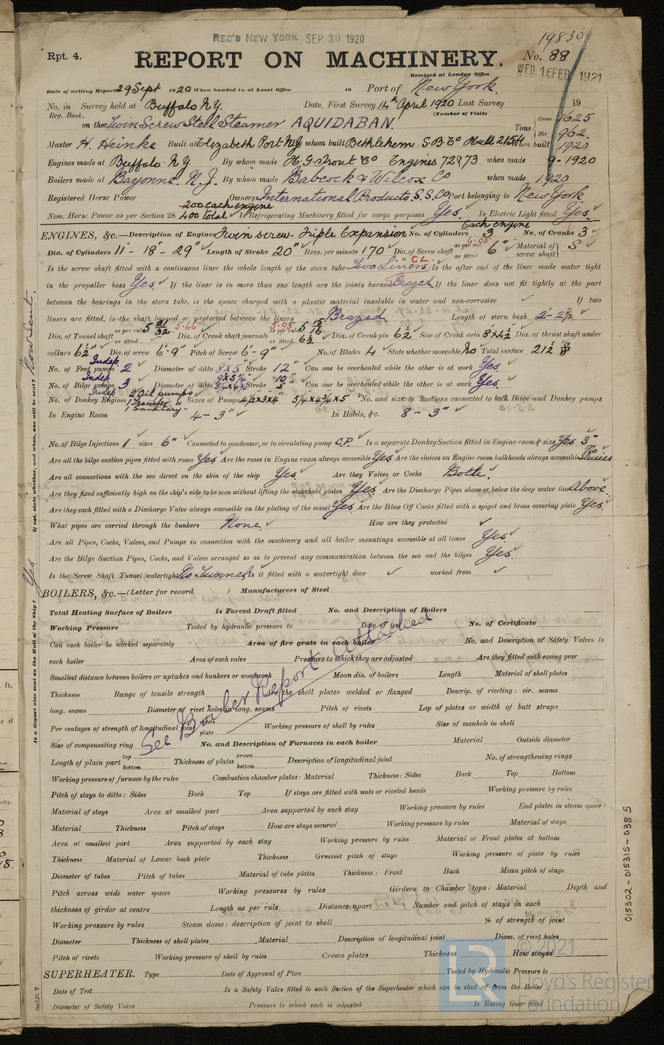 REC'D NEW YORK SEP 30 1920
19830
Rpt. 4.
REPORT ON MACHINERY.
No. 88
WED. 16 FEB 1921
Received at London Office
Date of writing Report 29 Sept 1920 When handed in at Local Office 10 Port of New York.
No. in Survey held at Buffalo N.Y. Date, First Survey 14th April 1920 Last Survey 19
Reg. Book. (Number of Visits
on the Twin Screw Steel Steamer AQUIDABAN. Tons Gross 1625 Net 962
Master H. Heinke Built at Elizabeth Port N.J. By whom built Bethlehem S.B. Co Hull 2154 When built 1920
Engines made at Buffalo. N.Y By whom made H. G. Trout & Co Engines 72973 when made 9-1920
Boilers made at Bayonne. N.J. By whom made Babcock & Wilcox Co when made 1920
Registered Horse Power Owners International Products S.S. Co Port belonging to New York
200 each engine
Nom. Horse Power as per Section 28 400 Total Is Refrigerating Machinery fitted for cargo purposes Yes. Is Electric Light fitted Yes.
ENGINES, &c.—Description of Engines Twin screw Triple Expansion No. of Cylinders Each engine 3 No. of Cranks 3
Dia. of Cylinders 11" - 18" - 29" Length of Stroke 20" Revs. per minute 170 Dia. of Screw shaft as per rule 6.05 as fitted 6" Material of screw shaft S
Is the screw shaft fitted with a continuous liner the whole length of the stern tube Two Liners = CL Is the after end of the liner made water tight
in the propeller boss Yes. If the liner is in more than one length are the joints burned Brazed If the liner does not fit tightly at the part
between the bearings in the stern tube, is the space charged with a plastic material insoluble in water and non-corrosive If two
liners are fitted, is the shaft lapped or protected between the liners Brazed. Length of stern bush 2'-2½"
Dia. of Tunnel shaft as per rule 5 21/32 5.66 Dia. of Crank shaft journals as per rule 5.95 5 15/16 as fitted 6½ Dia. of Crank pin 6½ Size of Crank webs 8x4½ Dia. of thrust shaft under
collars 6½" Dia. of screw 6'9" Pitch of Screw 6'-9" No. of Blades 4 State whether moveable No Total surface 21½
No. of Feed pumps Indep 2 Diameter of ditto Stroke 12" Can one be overhauled while the other is at work Yes.
No. of Bilge pumps Indep 3 Diameter of ditto Stroke Can one be overhauled while the other is at work Yes.
No. of Donkey Engines Sizes of Pumps No. and size of Suctions connected to both Bilge and Donkey pumps
In Engine Room 4 - 3" In Holds, &c. 8 - 3"
No. of Bilge Injections 1 sizes 6" Connected to condenser, or to circulating pump C.P. Is a separate Donkey Suction fitted in Engine room & size Yes 3"
Are all the bilge suction pipes fitted with roses Yes Are the roses in Engine room always accessible Yes Are the sluices on Engine room bulkheads always accessible Sluices
Are all connections with the sea direct on the skin of the ship Yes Are they Valves or Cocks Both.
Are they fixed sufficiently high on the ship's side to be seen without lifting the stokehold plates Yes Are the Discharge Pipes above or below the deep water line Above.
Are they each fitted with a Discharge Valve always accessible on the plating of the vessel Yes. Are the Blow Off Cocks fitted with a spigot and brass covering plate Yes.
What pipes are carried through the bunkers None. How are they protected
Are all Pipes, Cocks, Valves, and Pumps in connection with the machinery and all boiler mountings accessible at all times Yes
Are the Bilge Suction Pipes, Cocks, and Valves arranged so as to prevent any communication between the sea and the bilges Yes.
Is the Screw Shaft Tunnel watertight No Tunnel Is it fitted with a watertight door worked from
BOILERS, &c.—(Letter for record ) Manufacturers of Steel
Total Heating Surface of Boilers Is Forced Draft fitted No. and Description of Boilers
Working Pressure Tested by hydraulic pressure to Date of test No. of Certificate
Can each boiler be worked separately Area of fire grate in each boiler No. and Description of Safety Valves to
each boiler Area of each valve Pressure to which they are adjusted Are they fitted with easing gear
Smallest distance between boilers or uptakes and bunkers or woodwork Mean dia. of boilers Length Material of shell plates
Thickness Range of tensile strength Are the shell plates welded or flanged Descrip. of riveting: cir. seams
long. seams Diameter of rivet holes in long. seams Pitch of rivets Lap of plates or width of butt straps
Per centages of strength of longitudinal joint rivets plate Working pressure of shell by rules Size of manhole in shell
Size of compensating ring No. and Description of Furnaces in each boiler Material Outside diameter
Length of plain part top bottom Thickness of plates crown bottom Description of longitudinal joint No. of strengthening rings
Working pressure of furnace by the rules Combustion chamber plates: Material Thickness: Sides Back Top Bottom
Pitch of stays to ditto: Sides Back Top If stays are fitted with nuts or riveted heads Working pressure by rules
Material of stays Area at smallest part Area supported by each stay Working pressure by rules End plates in steam space:
Material Thickness Pitch of stays How are stays secured Working pressure by rules Material of stays
Area at smallest part Area supported by each stay Working pressure by rules Material of Front plates at bottom
Thickness Material of Lower back plate Thickness Greatest pitch of stays Working pressure of plate by rules
Diameter of tubes Pitch of tubes Material of tube plates Thickness: Front Back Mean pitch of stays
Pitch across wide water spaces Working pressures by rules Girders to Chamber tops: Material Depth and
thickness of girder at centre Length as per rule Distance apart Number and pitch of stays in each
Working pressure by rules Steam dome: description of joint to shell % of strength of joint
Diameter Thickness of shell plates Material Description of longitudinal joint Diam. of rivet holes
Pitch of rivets Working pressure of shell by rules Crown plates Thickness How stayed
SUPERHEATER. Type Date of Approval of Plan Tested by Hydraulic Pressure to
Date of Test Is a Safety Valve fitted to each Section of the Superheater which can be shut off from the Boiler
Diameter of Safety Valve Pressure to which each is adjusted Is Easing Gear fitted
See Boiler Report Attached
Is a Report also sent on the Hull of the Ship? Yes If not, state whether, and when, one will be sent? Now Sent.
015302-015315-0385
LR © 2021
Lloyd's Register
Foundation